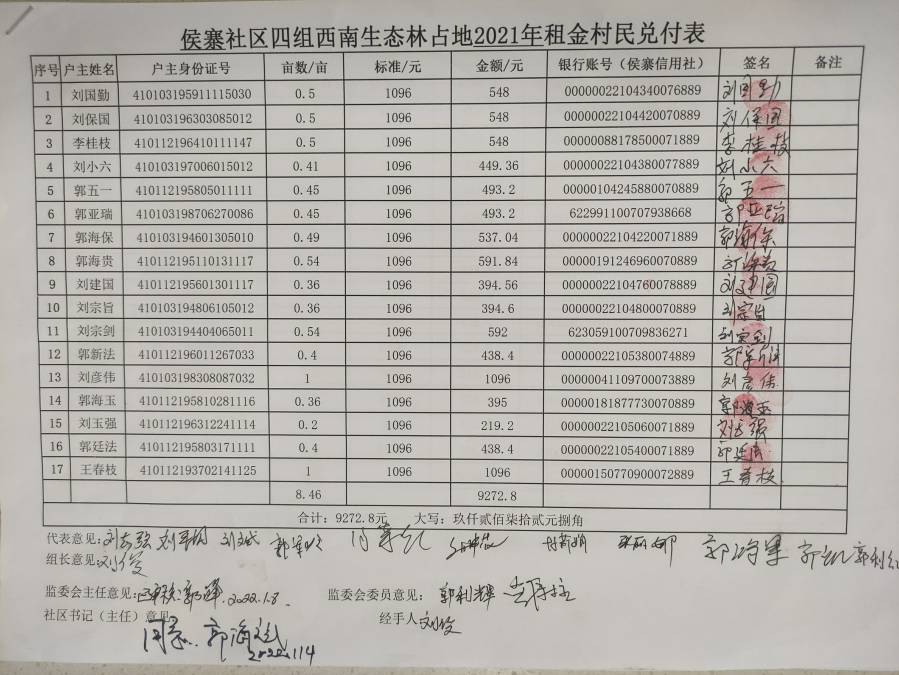 侯寨社区四组西南生态林占地2021年租金村民兑付表
序号 户主姓名 户主身份证号 亩数/亩 标准/元 金额/元 银行账号（侯寨信用社） 签名 备注
1 刘国勤 410103195911115030 0.5 1096 548 00000022104340076889 刘国勤
2 刘保国 410103196303085012 0.5 1096 548 00000022104420070889 刘保国
3 李桂枝 410112196410111147 0.5 1096 548 00000088178500071889 李桂枝
4 刘小六 410103197006015012 0.41 1096 449.36 00000022104380077889 刘小六
5 郭五一 410112195805011111 0.45 1096 493.2 00000104245880070889 郭五一
6 郭亚瑞 410103198706270086 0.45 1096 493.2 622991100707938668 郭亚瑞
7 郭海保 410103194601305010 0.49 1096 537.04 00000022104220071889 郭海保
8 郭海贵 410112195110131117 0.54 1096 591.84 00000191246960070889 郭海贵
9 刘建国 410112195601301117 0.36 1096 394.56 00000022104760078889 刘建国
10 刘宗旨 410103194806105012 0.36 1096 394.6 00000022104800070889 刘宗旨
11 刘宗剑 410103194404065011 0.54 1096 592 623059100709836271 刘宗剑
12 郭新法 410112196011267033 0.4 1096 438.4 00000022105380074889 郭新法
13 刘彦伟 410103198308087032 1 1096 1096 00000041109700073889 刘彦伟
14 郭海玉 410112195810281116 0.36 1096 395 00000181877730070889 郭海玉
15 刘玉强 410112196312241114 0.2 1096 219.2 00000022105060071889 刘玉强
16 郭廷法 410112195803171111 0.4 1096 438.4 00000022105400071889 郭廷法
17 王春枝 410112193702141125 1 1096 1096 00000150770900072889 王春枝
8.46 9272.8
合计：9272.8元 大写：玖仟贰佰柒拾贰元捌角
代表意见：
组长意见：刘俊
监委会主任意见： 2022.1.8. 监委会委员意见：郭利辉
社区书记（主任）意见： 经手人：刘俊
郭海
2022.1.14